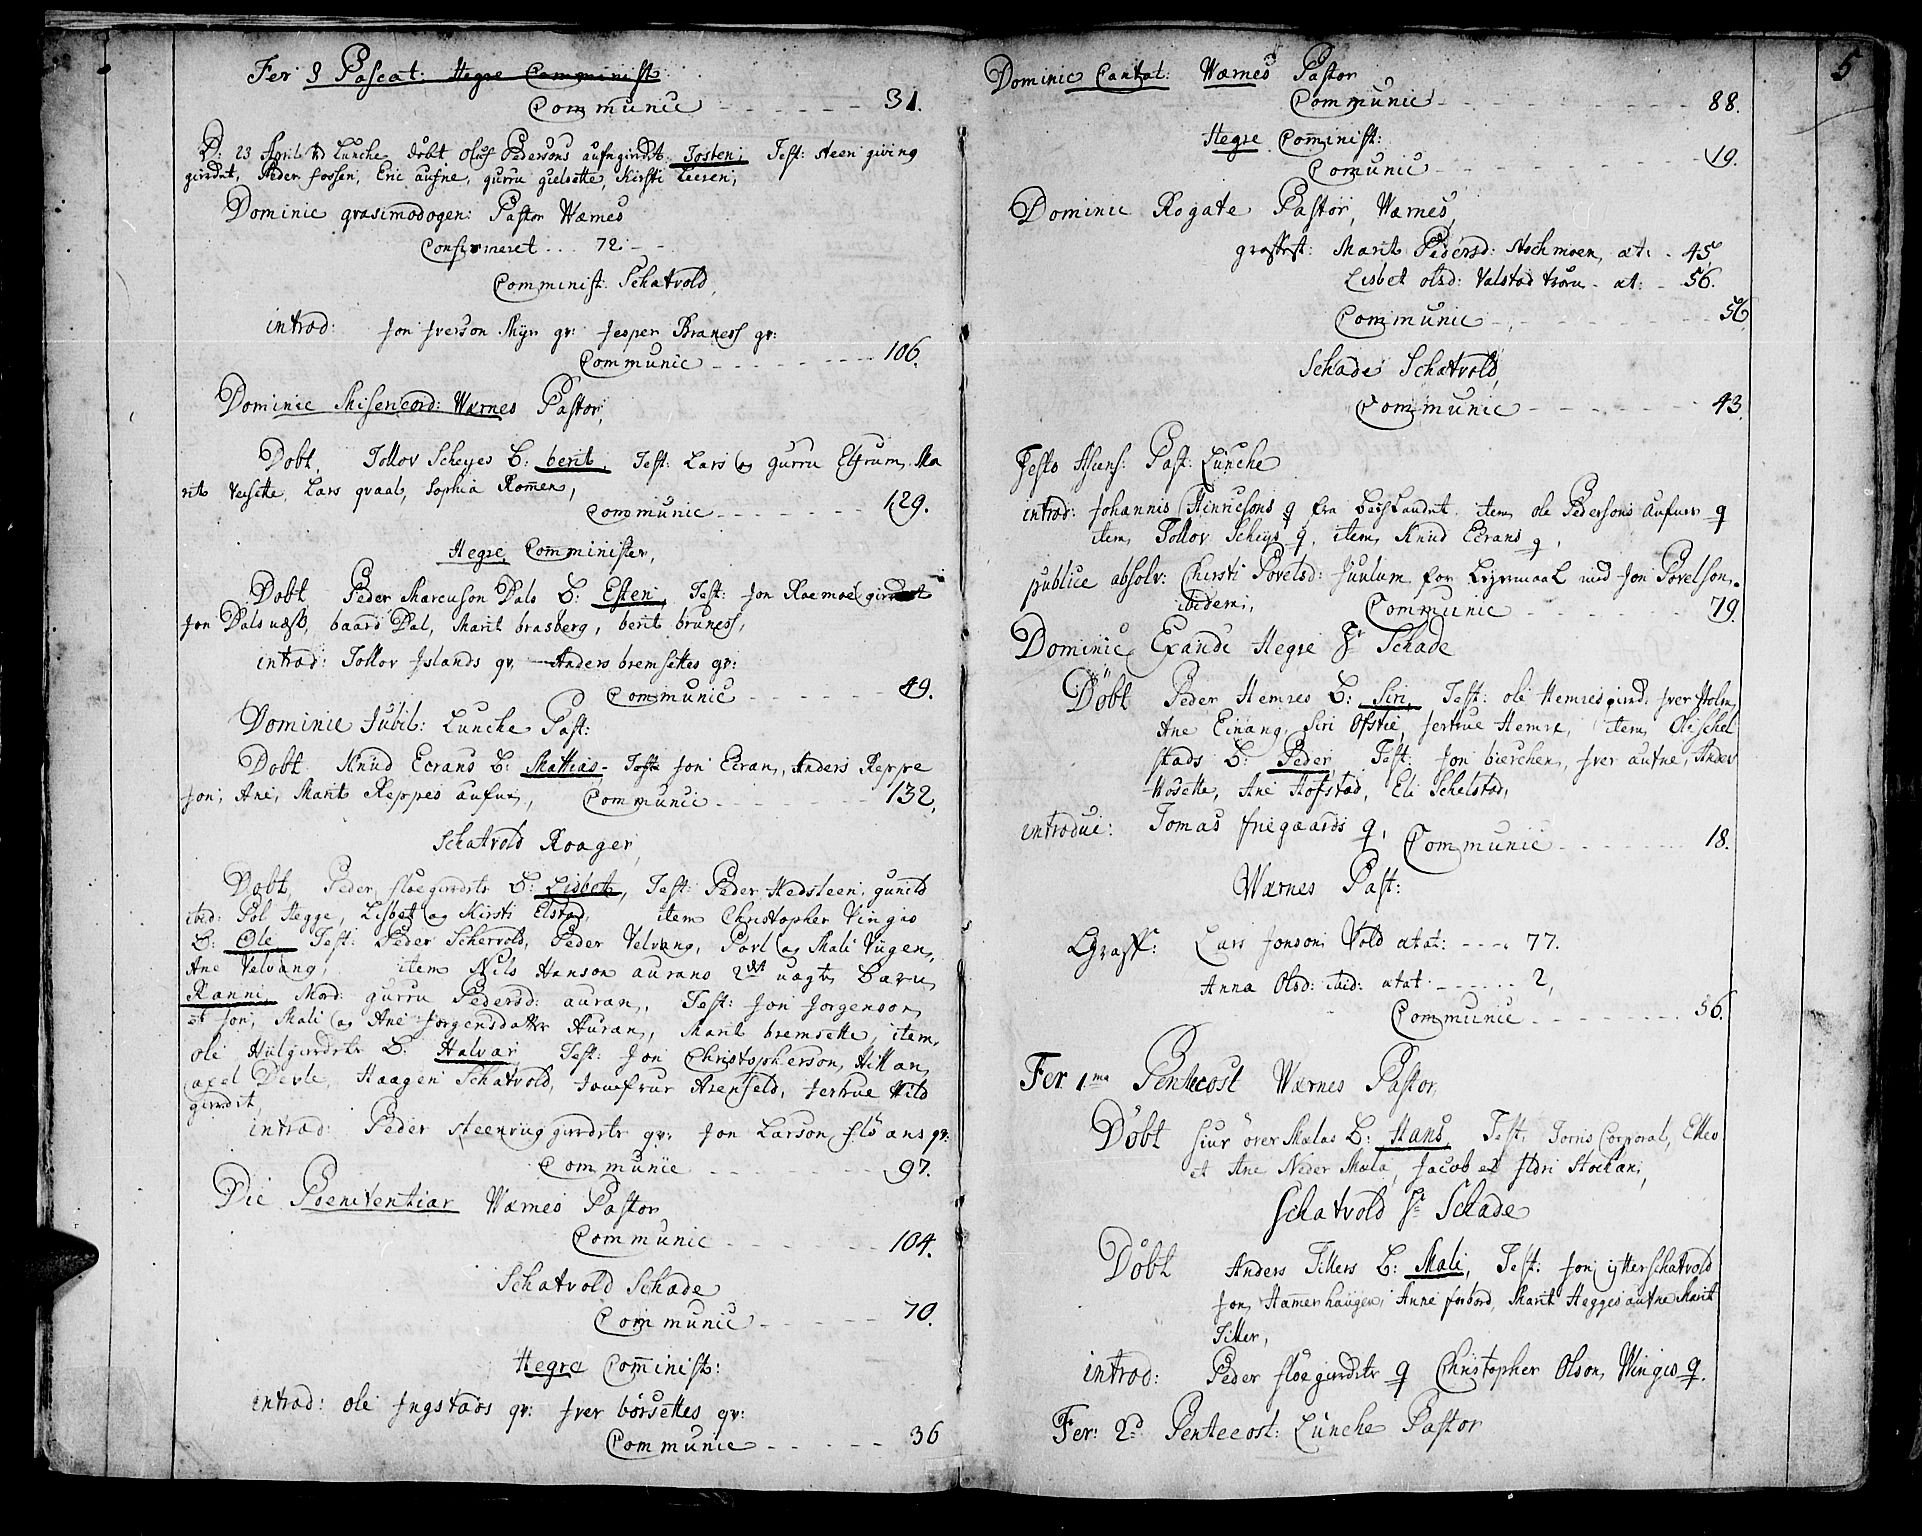 Fer 3 Pascat: Hegre Comminist
Communic - - - - - - 31.
D: 23 April Lunche döbt Oluf Pedersons aufngirdit Josten, Test: steen giving
girdit, Peder fossen, Eric aufne, gurru gielsette, Kirsti Leeren,
Dominic qvasimodogen: Pastor Wærnes
Confirmeret ... 72 - -
Comminist. Schatvold,
introd: Jon Jverson Myr qv: Jesper Braness qv:
Communic - - - - - - 106.
Dominic Misericord: Wærnes Pastor,
Dobt, Tollov Scheyes B: berit, Test: Lars og gurru Elfrum, Ma
rit versette, Lars qvaal, Sophia Romen,
Communic - - - - - 129.
Hegre Comminister,
Dobt Peder Marcuson Dals B: Esten, Test: Jon Roemoe
Jon Dals , baard Dal, Marit brasberg, berit bruness,
introd: Tollov Jslands qv Anders bremsettes qv:
Communic - - - - - 49.
Dominic Jubil: Lunche Past:
Dobt Knud Ecrans B: Mathias, Test: Jon Ecran, Anders Reppe
Jon, Ane, Marit Reppes aufne, Communic - - - - - 132,
Schatvold Roager,
Dobt, Peder floegirdets B: Lisbet, Test: Peder Hedsteen, gunild
ibid: Pol Hegge, Lisbet og Kirsti Elstad, item Christopher Vinges
B: Ole Test: Peder Schervold, Peder Velvang, Povl og Mali Vingen,
Ane Velvang, item Nils Hanson aurans 2det uægte Barn
Ranni, Mod: gurru Pedersd: auran, Test: Jon Jorgenson,
et Jon, Mali og Ane Jorgensdatter Auran, Marit bremsette, item,
ole Hulgirdets B: Halvar, Test: Jon Christopherson Hittan,
axel Devle, Haagen Schatvold, Jomfrur Arenfeld, Jertrue Hild
girdit,
introd: Peder steenvig girdets qv: Jon Larson flöans qv:
Communic - - - - - 97.
Die Poenitentiar Wærnes Pastor
Communic - - - - - 104.
Schatvold Schade
Communic - - - - - 70.
Hegra Cominist:
introd: ole Jngstads qv: Jver börsettes qv:
Communic - - - - - 36
5
Dominic Cantat: Wærnes Pastor
Communic - - - - - - 88.
Hegre Cominist:
Comunic - - - - - - 19.
Dominic Rogate Pastor, Wærnes,
graffest: Marit Pedersd: Mochmoen, æt: - 45,
Lisbet olsd: Valstad trörn - æt: - 56.
Communic - - - - - - 56
Schade Schatvold,
Communic - - - - - 43.
Festo Ascens: Past: Lunche
introd: Johannis Hinricsons q fra item ole Pedersons Aufnes q
item, Tollov Scheys q, item, Knud Ecrans q,
publice absolv: Chirsti Povelsd: Juulum for Leyermaal med Jon Povelson
ibidem, Communic - - - - 79.
Dominic Exaudi Hegre Hr Schade
Döbt Peder Hemres B: Siri, Test: ole Hemresgird. Jver Holm,
Ane Einang, Siri Ofstie, Jertrue Hemre, item, Ole Schel
stads B: Peder, Test: Jon bierchen, Jver aufne, Ander
Mosette, Ane Hofstad, Eli Schelstad,
introduc: Tomas friegaards q, Communic - - - - - 18.
Wærnes Past:
Graff: Lars Jonson Vold ætat: - - - - 77.
Anna Olsd: ibid: ætat: - - - - - - 2,
Communic - - - - - - 56.
Fer 1ma Pentecost Wærnes Pastor,
Döbt Siur över Mælas B: Hans, Test: Torris Corporal, Ellev
et Ane Neder Mæla, Jacob et Ildri Stockan,
Schatvold Hr Schade
Döbt Anders Tillers B: Mali, Test: Jon ytterschatvold
Jon Hamerhaugen, Anne forbord, Marit Hegges aufne Marit
Tiller,
introd: Peder floegirdets q Christopher Olson, Vinges q.
Fer: 2d Pentecost: Lünche Pastor